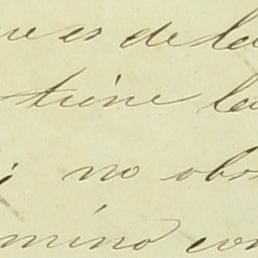 ue es de la
tiene la
; no obs
mino con